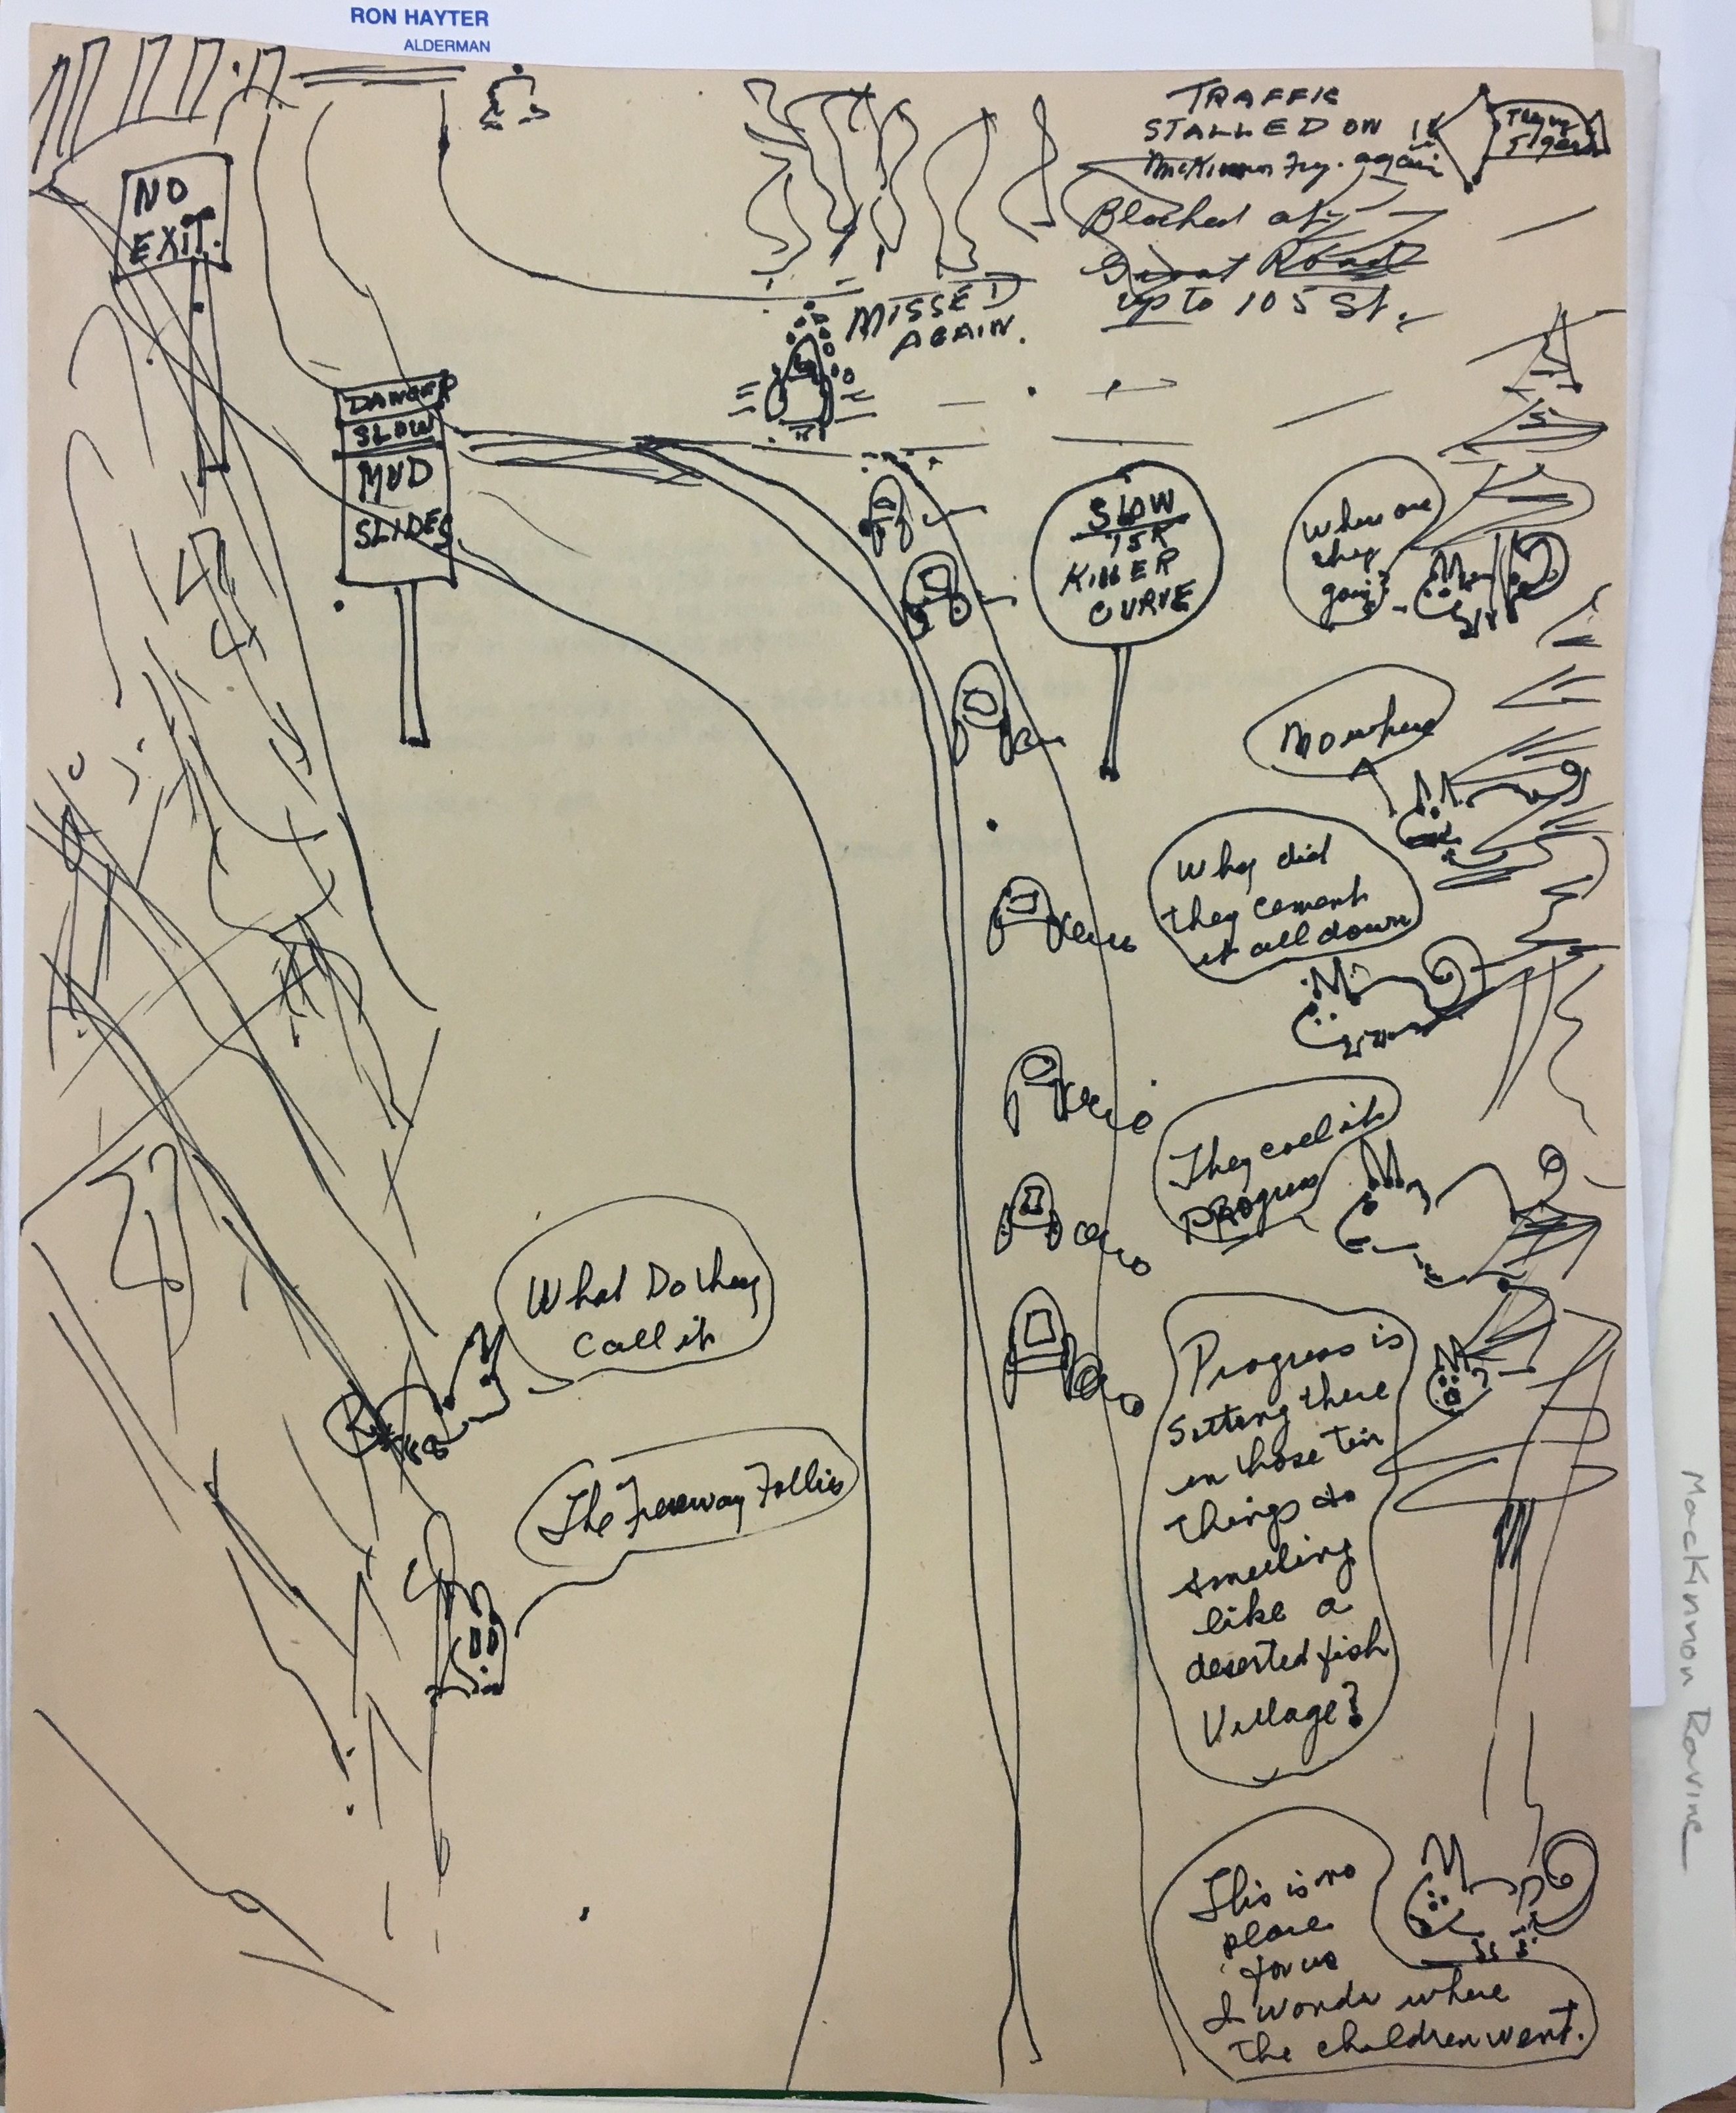 RON HAYTER
ALDERMAN
TRAFFIC
STALLED ON
McKinnon Fry. again
Flying
Tigers
Blocked at
Road
up to 105 St.
NO
EXIT.
MISSED
AGAIN.
DANGER
SLOW
MUD
SLIDES
SLOW
15K
KILLER
CURVE
Where are
they
going?
Nowhere
Why did
they cement
it all down
They call it
PROgress
What Do they
Call it
The Freeway Follies
Progress is
sitting there
in those tin
things
smelling
like a
deserted fish
Village?
This is no
place
for us
I wonder where
the children went.
MacKinnon Ravine